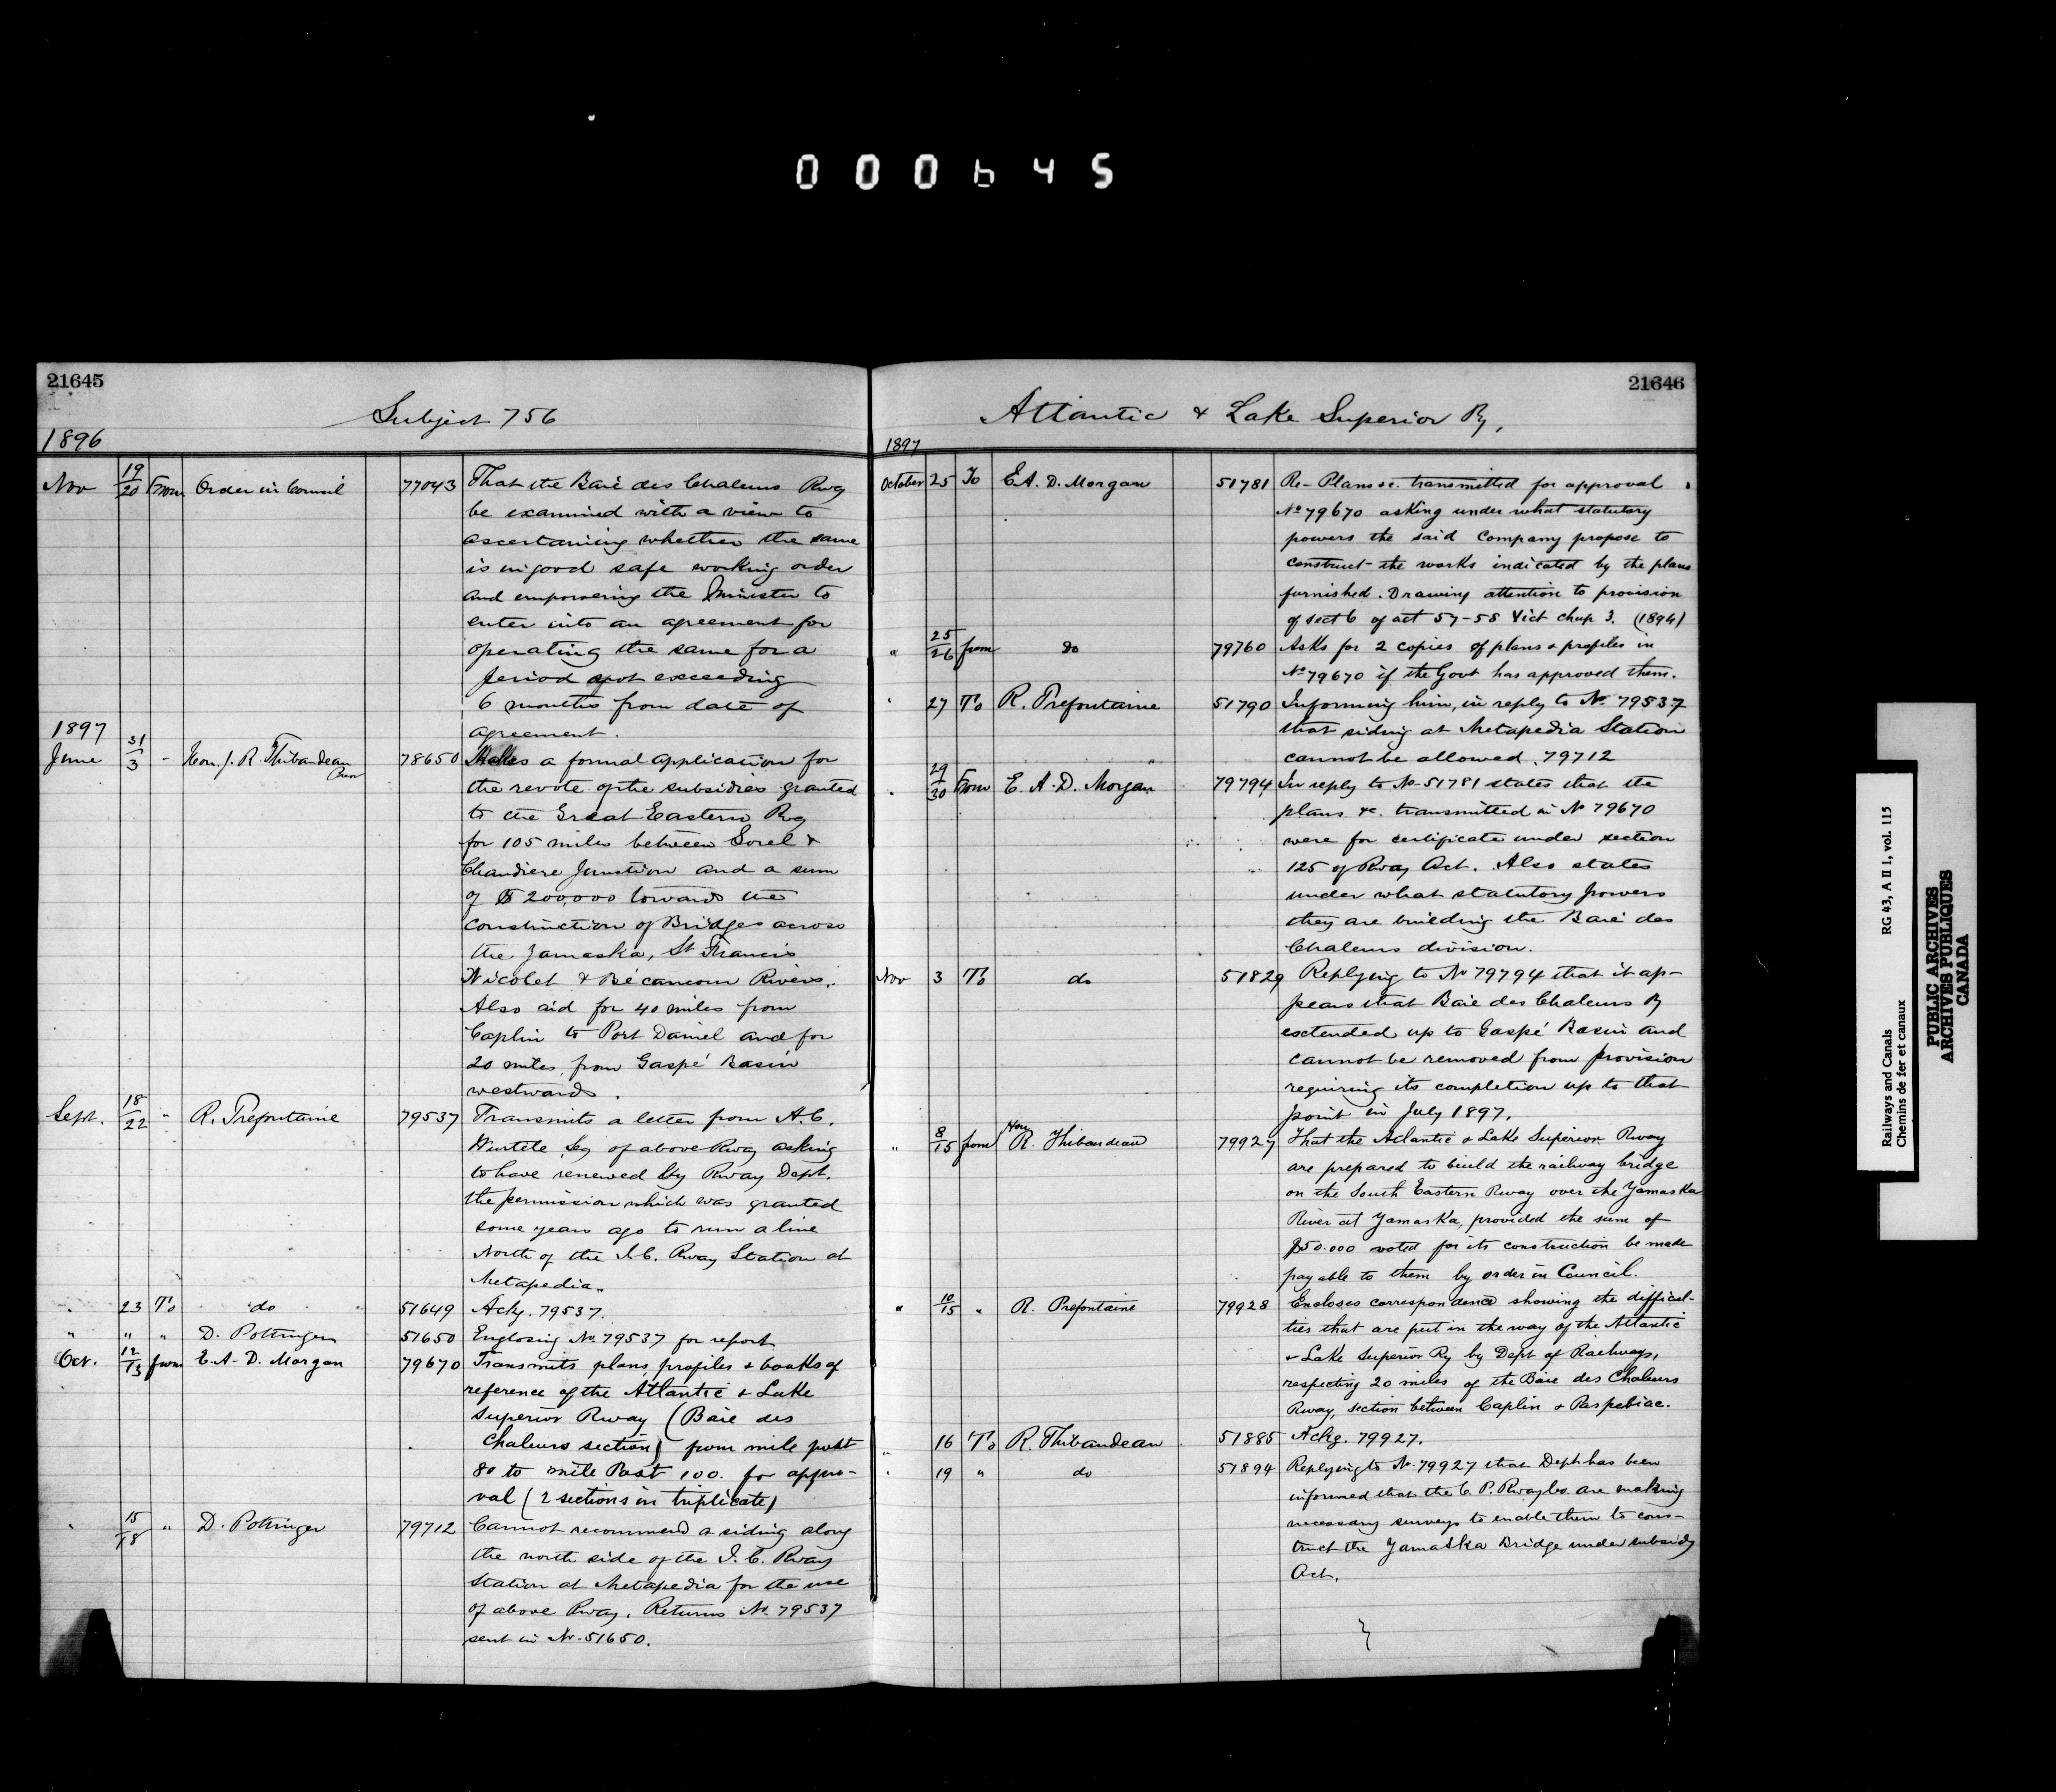 000645
21645
Subject 756
1896
Nov 19/20 From Order in Council 77043 That the Baie des Chaleurs Rwy
be examined with a view to
ascertaining whether the same
is in good safe working order
and empowering the Minister to
enter into an agreement for
operating the same for a
period not exceeding
6 months from date of
agreement.
1897
June 31/3 - Hon. J. R. Thibaudeau 78650 Makes a formal application for
the revote of the subsidies granted
to the Great Eastern Rwy
for 105 miles between Sorel &
Chaudiere Junction and a sum
of $200,000 towards the
construction of Bridges across
the Yamaska, St Francis
Nicolet & Bécancour Rivers.
Also aid for 40 miles from
Caplin to Port Daniel and for
20 miles, from Gaspé Basin
westwards.
Sept. 18/22 - R. Prefontaine 79537 Transmits a letter from A.C.
Wurtele, Sey of above Rway asking
to have renewed by Rway Dept.
the permission which was granted
some years ago to run a line
North of the I.C. Rway Station at
Metapedia.
" 23 To do 51649 Ackg. 79537.
" " " D. Pottinger 51650 Englosing No. 79537 for report
Oct. 12/13 from E. A. D. Morgan 79670 Transmits plans, profiles & books of
reference of the Atlantic & Lake
Superior Rway (Baie des
Chaleurs section) from mile post
80 to mile Post 100. for appro-
val (2 sections in triplicate)
" 15/18 " D. Pottinger 79712 Cannot recommend a siding along
the north side of the I. C. Rway
Station at Metapedia for the use
of above Rway. Returns No. 79537
sent in No. 51650.
21646
Atlantic & Lake Superior Ry,
1897
October 25 To E. A. D. Morgan 51781 Re- Plans &c. transmitted for approval
No 79670 asking under what statutory
powers the said Company propose to
construct the works indicated by the plans
furnished. Drawing attention to provision
of sect 6 of act 57-58 Vict chap 3. (1894)
" 25/26 from do 79760 Asks for 2 copies of plans & profiles in
No 79670 if the Govt has approved them.
" 27 To R. Prefontaine 51790 Informing him, in reply to No. 79537
that siding at Metapedia Station
cannot be allowed. 79712
" 29/30 From E. A. D. Morgan 79794 In reply to No. 51781 states that the
plans &c. transmitted in No 79670
were for certificate under section
125 of Rway Act. Also states
under what statutory powers
they are building the Baie des
Chaleurs division.
Nov 3 To do 51829 Replying to No 79794 that it ap-
pears that Baie des Chaleurs Ry
extended up to Gaspé Basin and
cannot be removed from provision
requiring its completion up to that
point in July 1897.
" 8/15 from Hon R. Thibaudeau 79927 That the Atlantic & Lake Superior Rway
are prepared to build the railway bridge
on the South Eastern Rway over the Yamaska
River at Yamaska, provided the sum of
$50.000 voted for its construction be made
payable to them by order in Council.
" 10/15 " R. Prefontaine 79928 Encloses correspondence showing the difficul-
ties that are put in the way of the Atlantic
& Lake Superior Ry by Dept of Railways,
respecting 20 miles of the Baie des Chaleurs
Rway, section between Caplin & Paspebiac.
" 16 To R. Thibaudeau 51885 Ackg. 79927.
" 19 " do 51894 Replying to No. 79927 that Dept has been
informed that the C. P. Rway Co. are making
necessary surveys to enable them to cons-
truct the Yamaska Bridge under subsidy
Act.
Railways and Canals RG 43, A II 1, vol. 115
Chemins de fer et canaux
PUBLIC ARCHIVES
ARCHIVES PUBLIQUES
CANADA